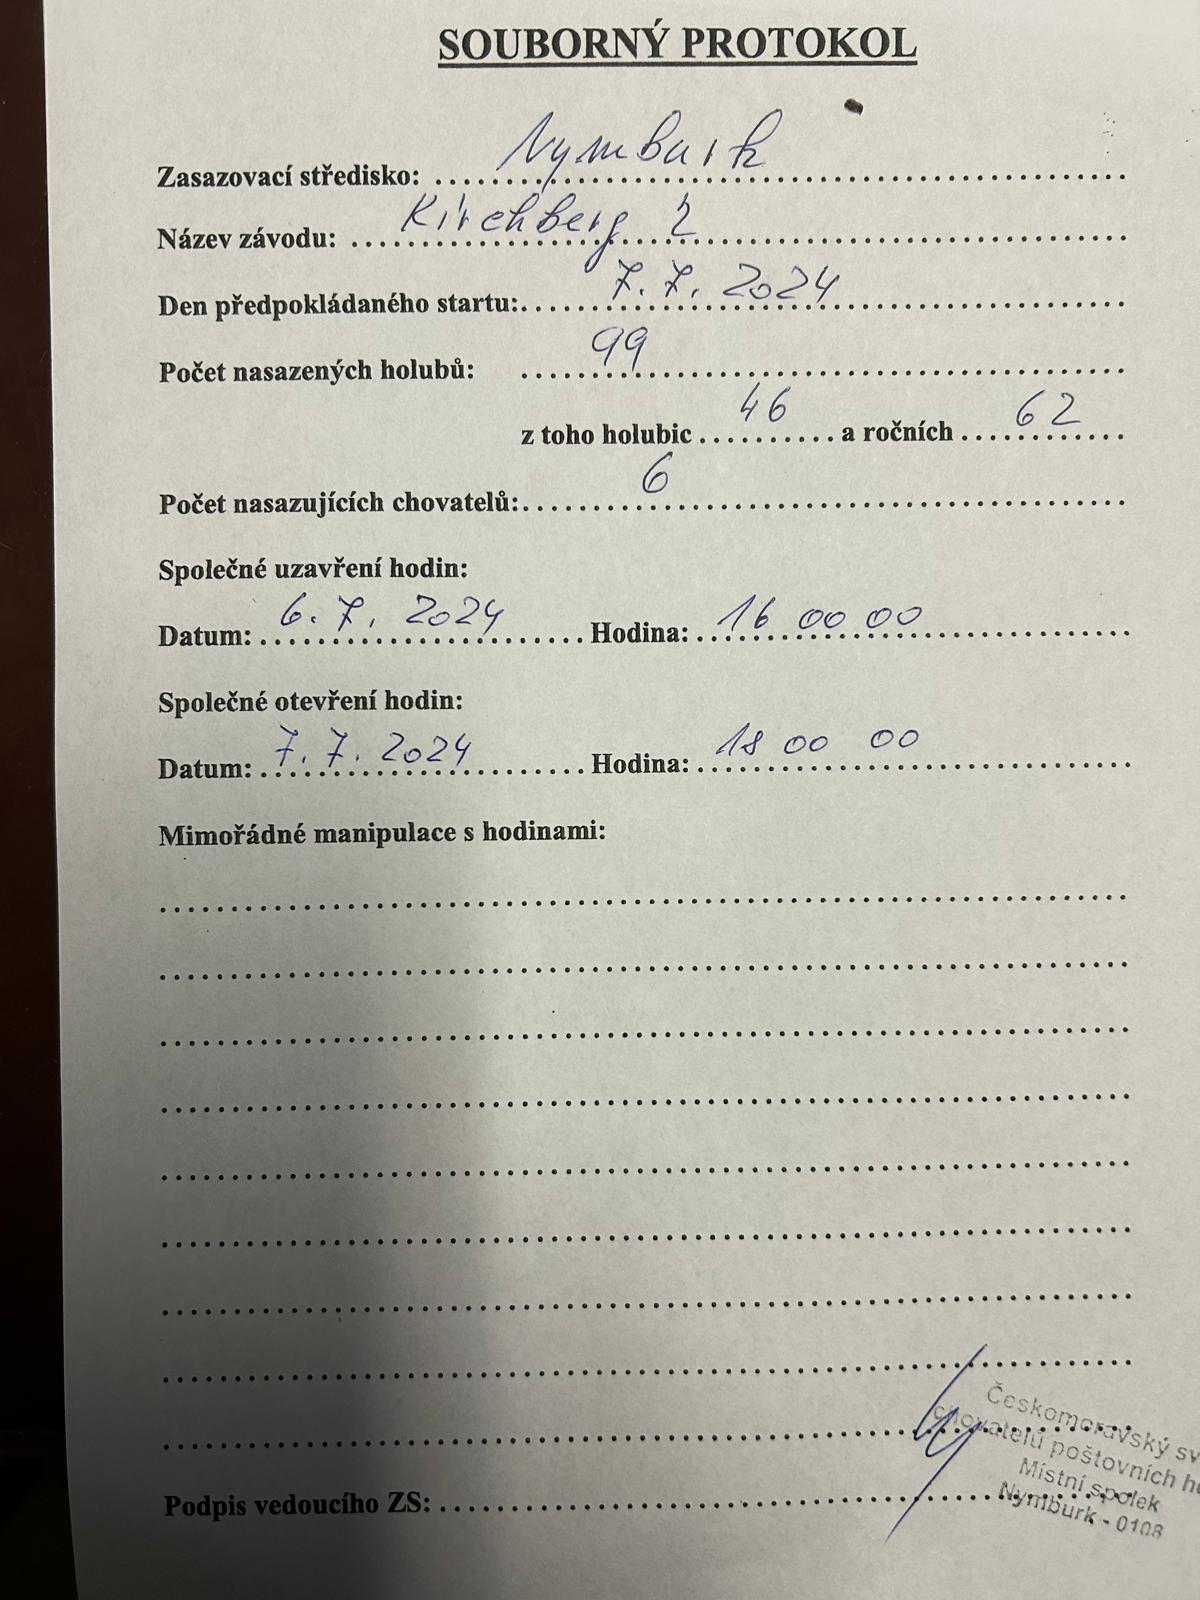 SOUBORNÝ PROTOKOL
Zasazovací středisko: Nymburk
Název závodu: Kirchberg 2
Den předpokládaného startu: 7. 7. 2024
Počet nasazených holubů: 99
z toho holubic 46 a ročních 62
Počet nasazujících chovatelů: 6
Společné uzavření hodin:
Datum: 6. 7. 2024 Hodina: 16 00 00
Společné otevření hodin:
Datum: 7. 7. 2024 Hodina: 18 00 00
Mimořádné manipulace s hodinami:
Českomoravský sv
chovatelů poštovních ho
Místní spolek
Nymburk - 0108
Podpis vedoucího ZS: